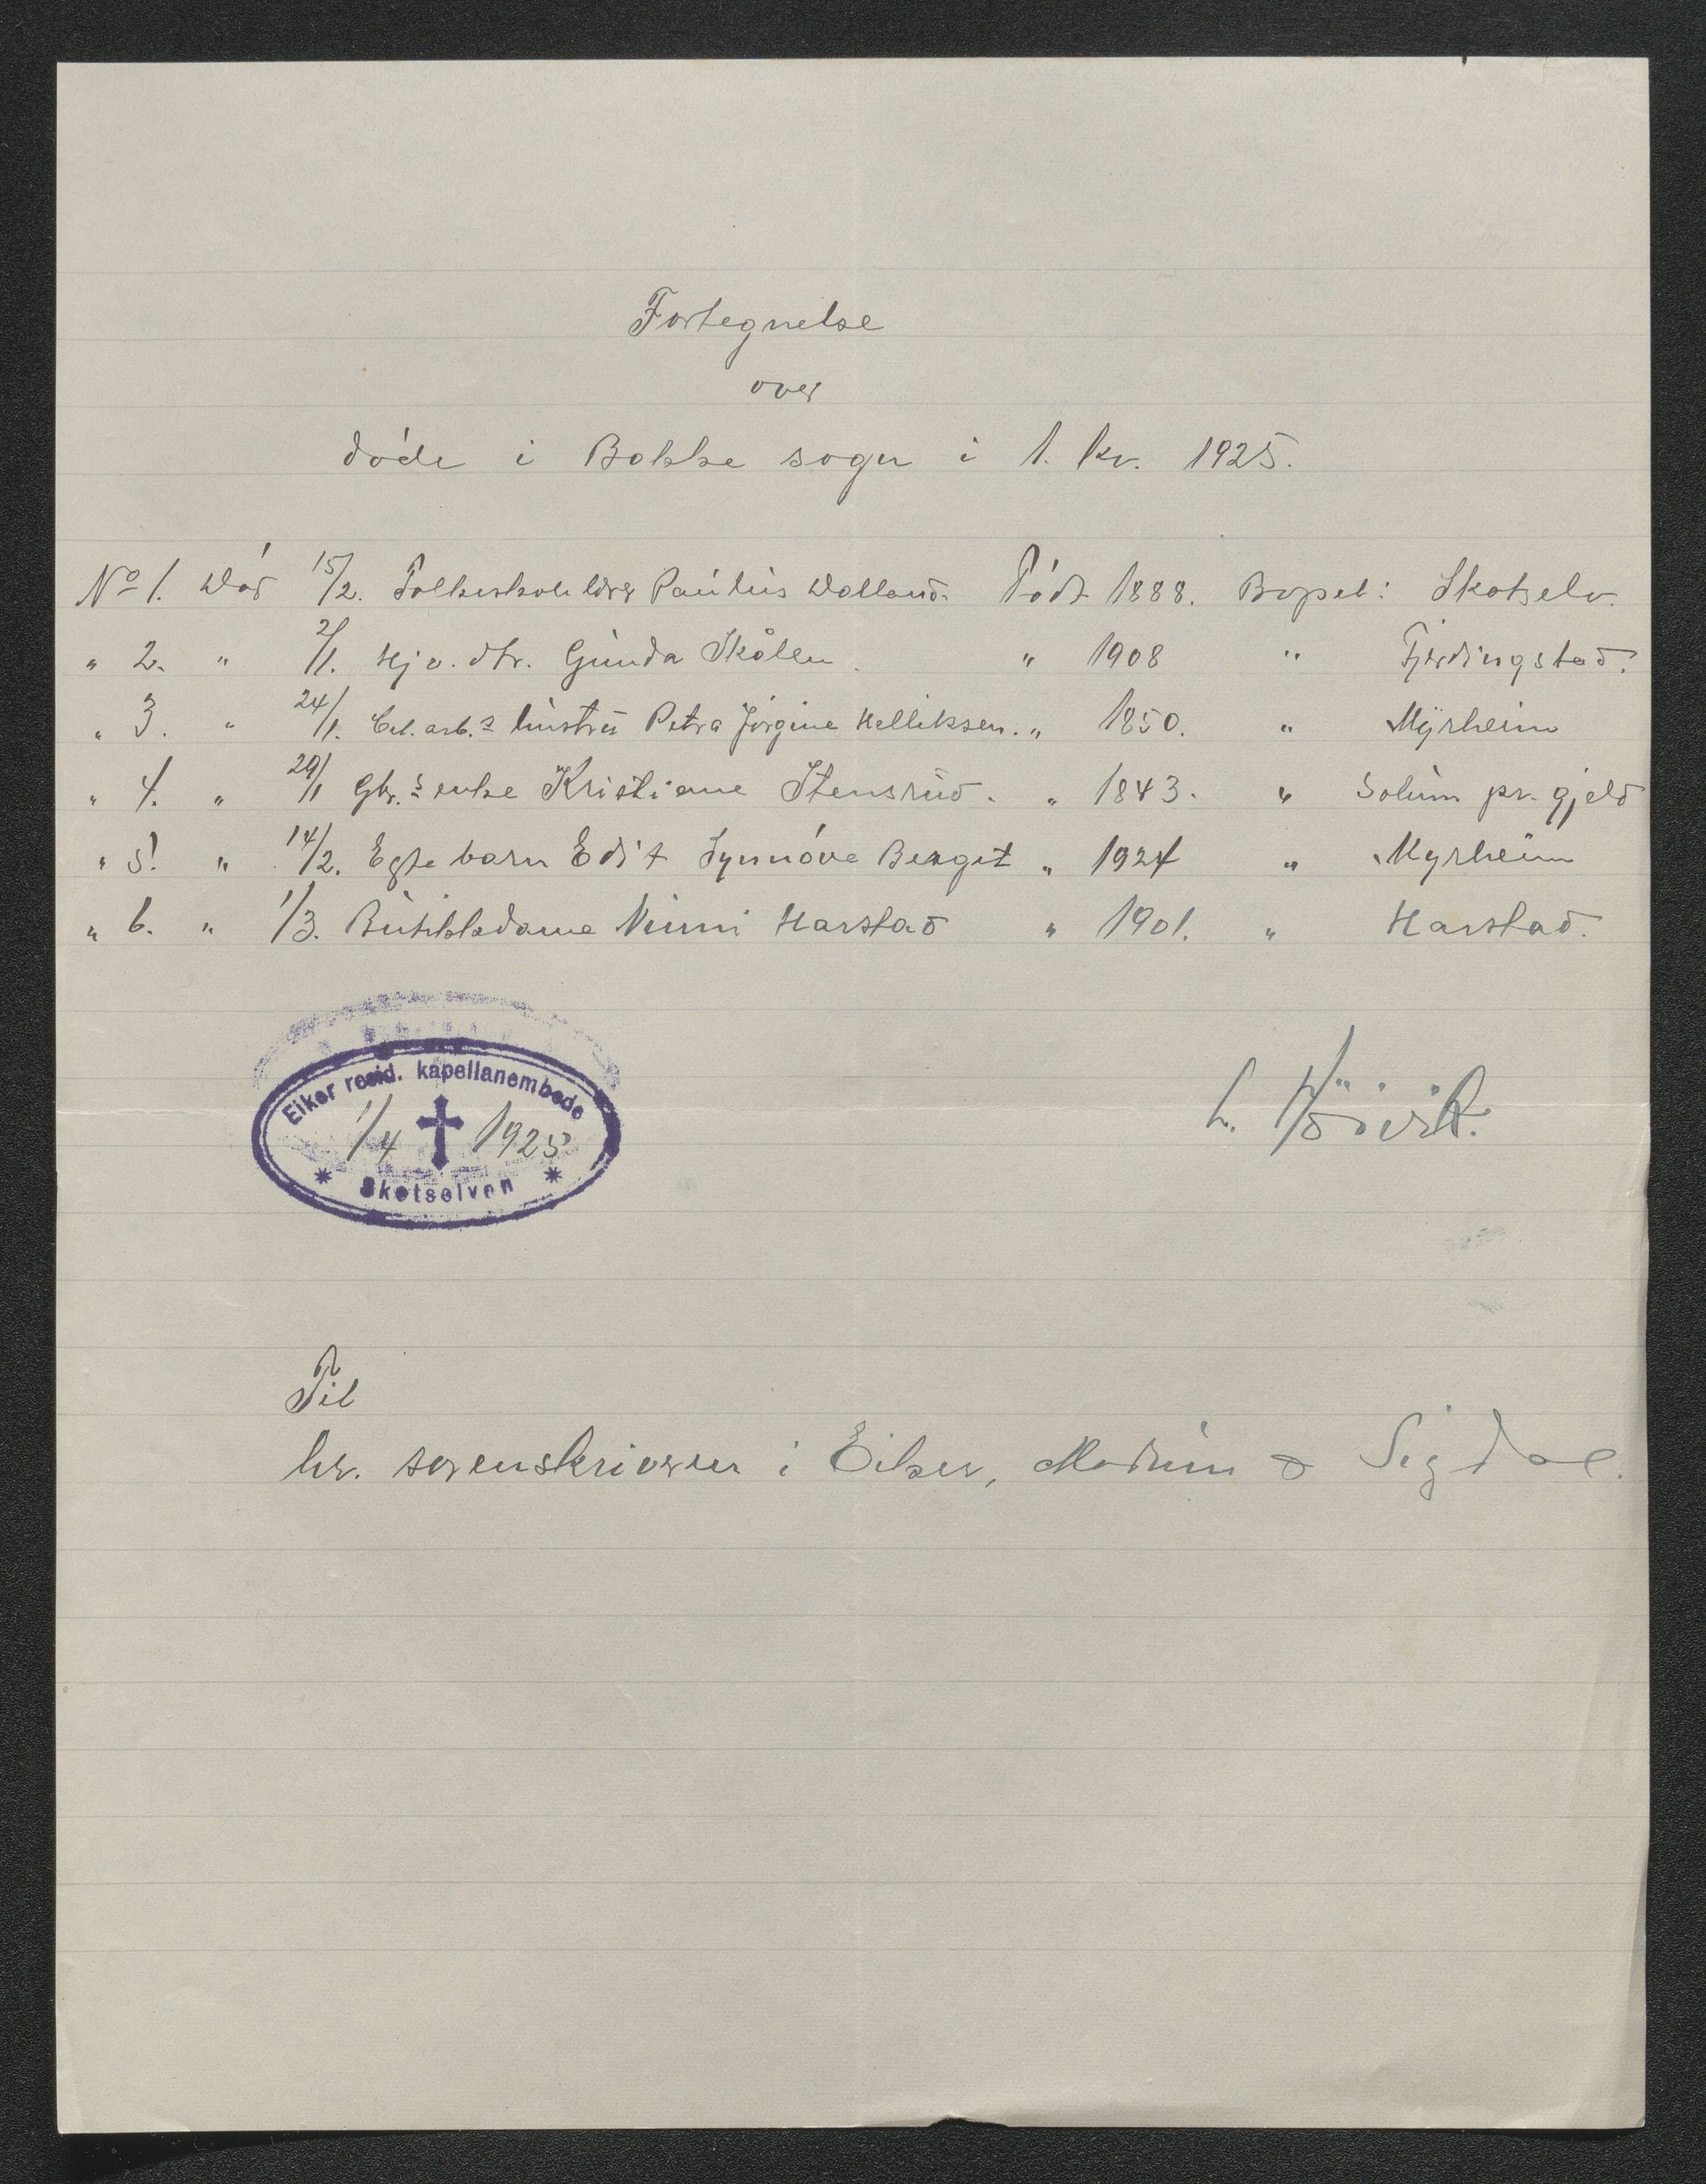 Fortegnelse
over
døde i Bakke sogn i 1. kv. 1925.
No 1. Død 15/2. Folkeskolelærer Paulus Dolland. Født 1888. Bopel: Skotselv.
" 2. " 2/1. Hjv. dtr. Gunda Skålen. " 1908 " Fjerdingstad.
" 3. " 24/1. Cel. arb.s hustru Petra Jørgine Helliksen. " 1850. " Myrheim
" 4. " 29/1 Gbr.s enke Kristiane Stensrud. " 1843. " Solum pr. gjeld
" 5. " 14/2. Egte barn Edit Synnøve Berget " 1924 " Myrheim
" 6. " 1/3. Butikkdame Nunni Harstad " 1901. " Harstad.
Eiker resid. kapellanembede
1/4 1925
Skotselven
L.
Til
hr. sorenskriveren i Eiker, Modum & Sigdal.